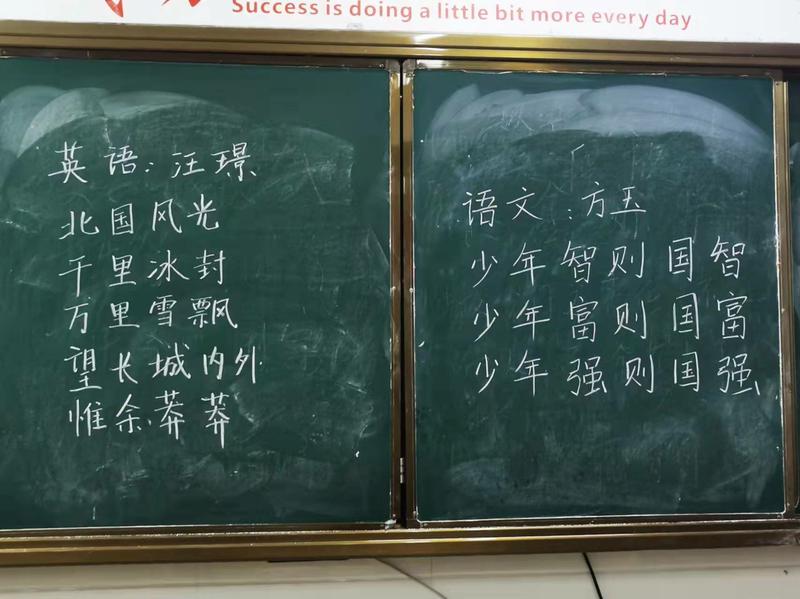 Success is doing a little bit more every day
英语:汪璟
北国风光
千里冰封
万里雪飘
望长城内外
惟余莽莽
语文:方玉
少年智则国智
少年富则国富
少年强则国强